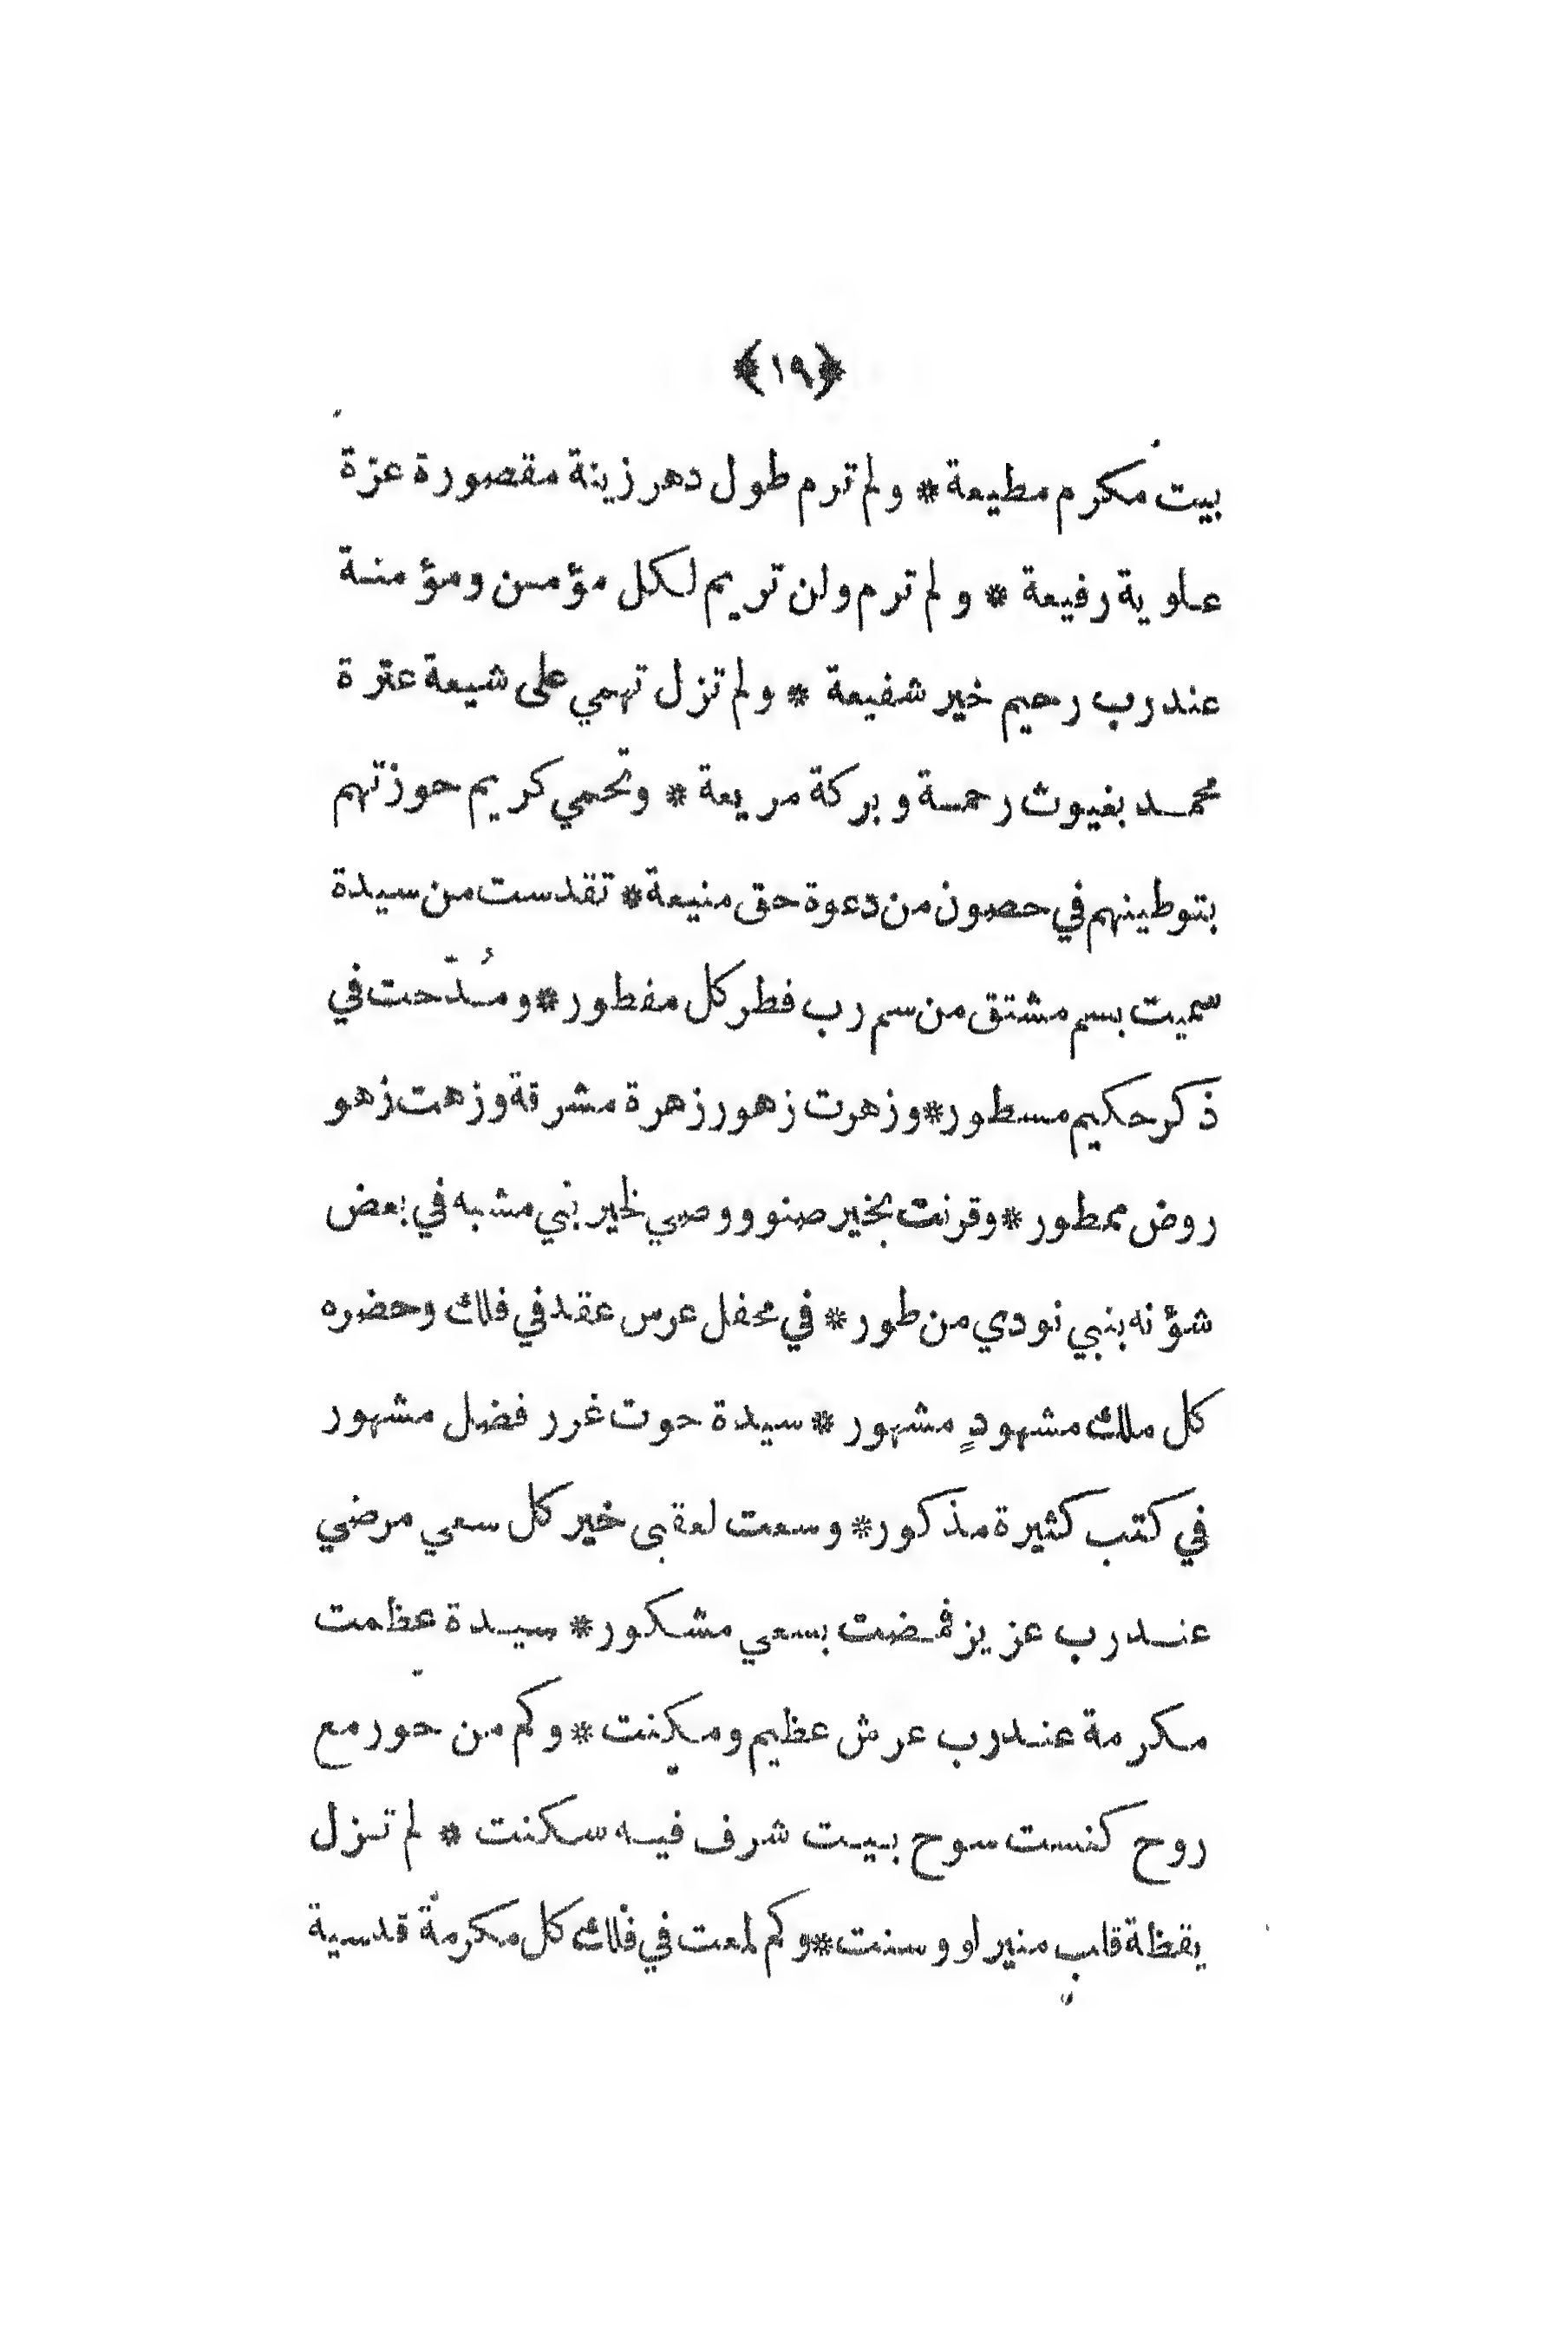 ﴿١٩﴾
بيت مكرم مطيعة * ولم ترم طول دهر زينة مقصورة عزّة
علوية رفيعة * ولم ترم ولن تريم لكل مؤمن ومؤمنة
عند رب رحيم خير شفيعة * ولم تزل تهمي على شيعة عترة
محمد بغيوث رحمة وبركة مريعة * وتحمي كريم حوزتهم
بتوطينهم في حصون من دعوة حق منيعة * تقدست من سيدة
سميت بسم مشتق من سم رب فطر كل مفطور * ومُدّحت في
ذكر حكيم مسطور * وزهرت زهور زهرة مشرقة وزهت زهو
روض ممطور * وقرنت بخير صنو ووصي لخير نبي مشبه في بعض
شؤنه بنبي نودي من طور * في محفل عرس عقد في فلك وحضره
كل ملك مشهودٍ مشهور * سيدة حوت غرر فضل مشهور
في كتب كثيرة مذكور * وسعت لعقبى خير كل سعي مرضي
عند رب عزيز فمضت بسعي مشكور * سيدة عظمت
مكرمة عند رب عرش عظيم ومكنت * وكم من حور مع
روح كنست سوح بيت شرف فيه سكنت * لم تزل
يقظة قلبٍ منير او وسنت * وكم لمعت في فلك كل مكرمة قدسية